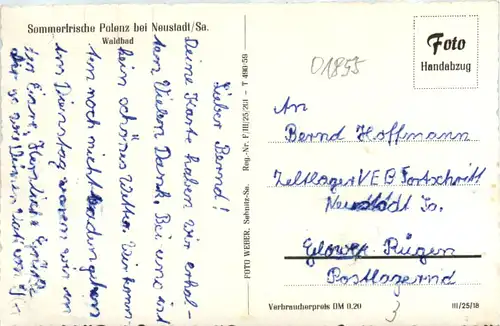 Sommerfrische Polenz bei Neustadt/Sa.
Waldbad
Lieber Bernd!
Deine Karte haben wir erhal-
ten. Vielen Dank. Bei uns ist
kein schönes Wetter. Wir konn
ten noch nicht baden gehen
Am Dienstag waren wir in
Herzliche Grüße
FOTO WEBER, Sebnitz-Sa. Reg.-Nr. F/III/25/201 - T 490-59
Foto
Handabzug
01855
An
Bernd Hoffmann
Zeltlager VEB Fortschritt
Neustadt Sa.
Glowe Rügen
Postlagernd
Verbraucherpreis DM 0.20
III/25/18
3